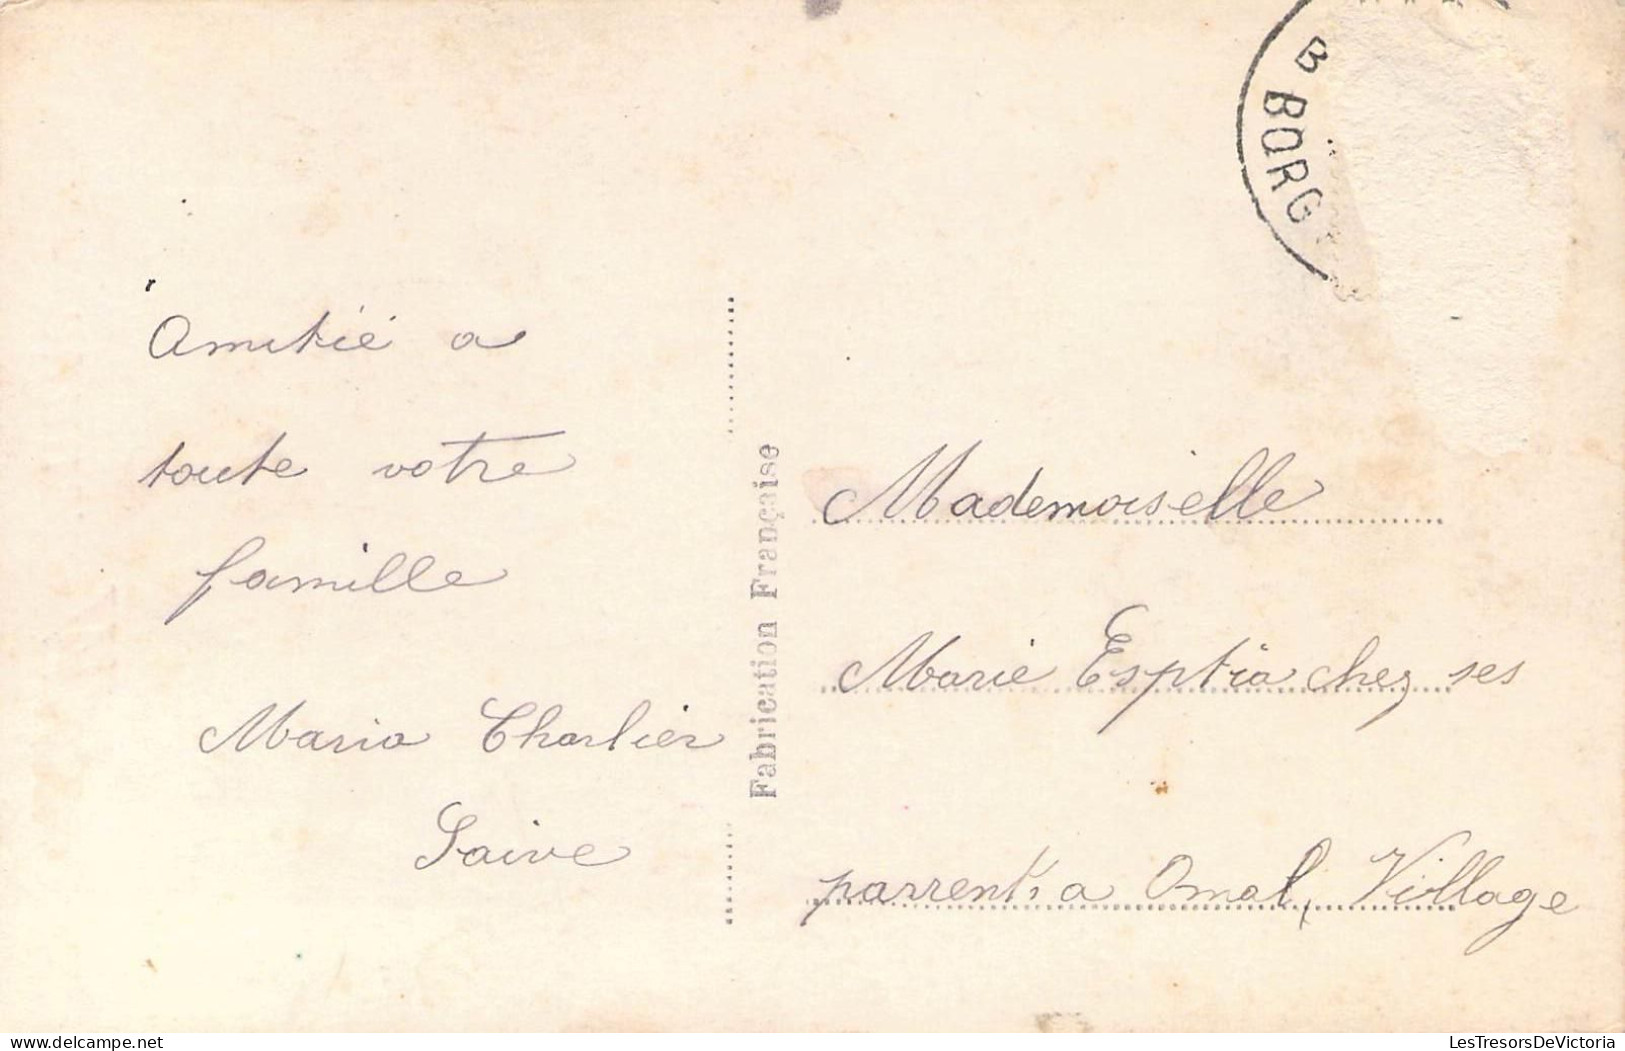 B
BORG
Amitié a
toute votre
famille
Maria Charlier
Saive
Fabrication Française
Mademoiselle
Marie Esptia chez ses
parrents a Omal, Village
delcampe.net
LesTresorsDeVictoria